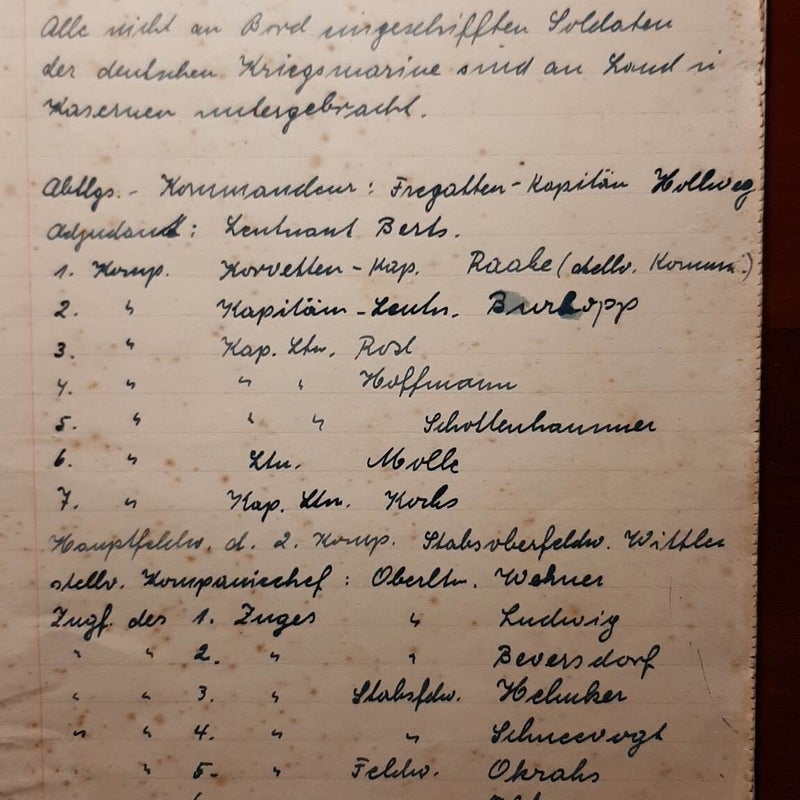 Alle nicht an Bord eingeschifften Soldaten
der deutschen Kriegsmarine sind an Land i
Kasernen untergebracht.
Abtlgs.- Kommandeur: Fregatten-Kapitän Hollweg
Adjudant: Leutnant Berts.
1. Komp. Korvetten-Kap. Raabe (stellv. Komm.)
2. " Kapitän-Leutn. Burkopp
3. " Kap. Ltn. Rost
4. " " " Hoffmann
5. " " " Schottenhammer
6. " Ltn. Molle
7. " Kap. Ltn. Kochs
Hauptfeldw. d. 2. Komp. Stabsoberfeldw. Wittler
stellv. Kompaniechef: Oberltn. Wehner
Zugf. des 1. Zuges " Ludwig
" " 2. " " Beversdorf
" " 3. " Stabsfdw. Helmker
" " 4. " " Schneevogt
" 5. " Feldw. Okrahs